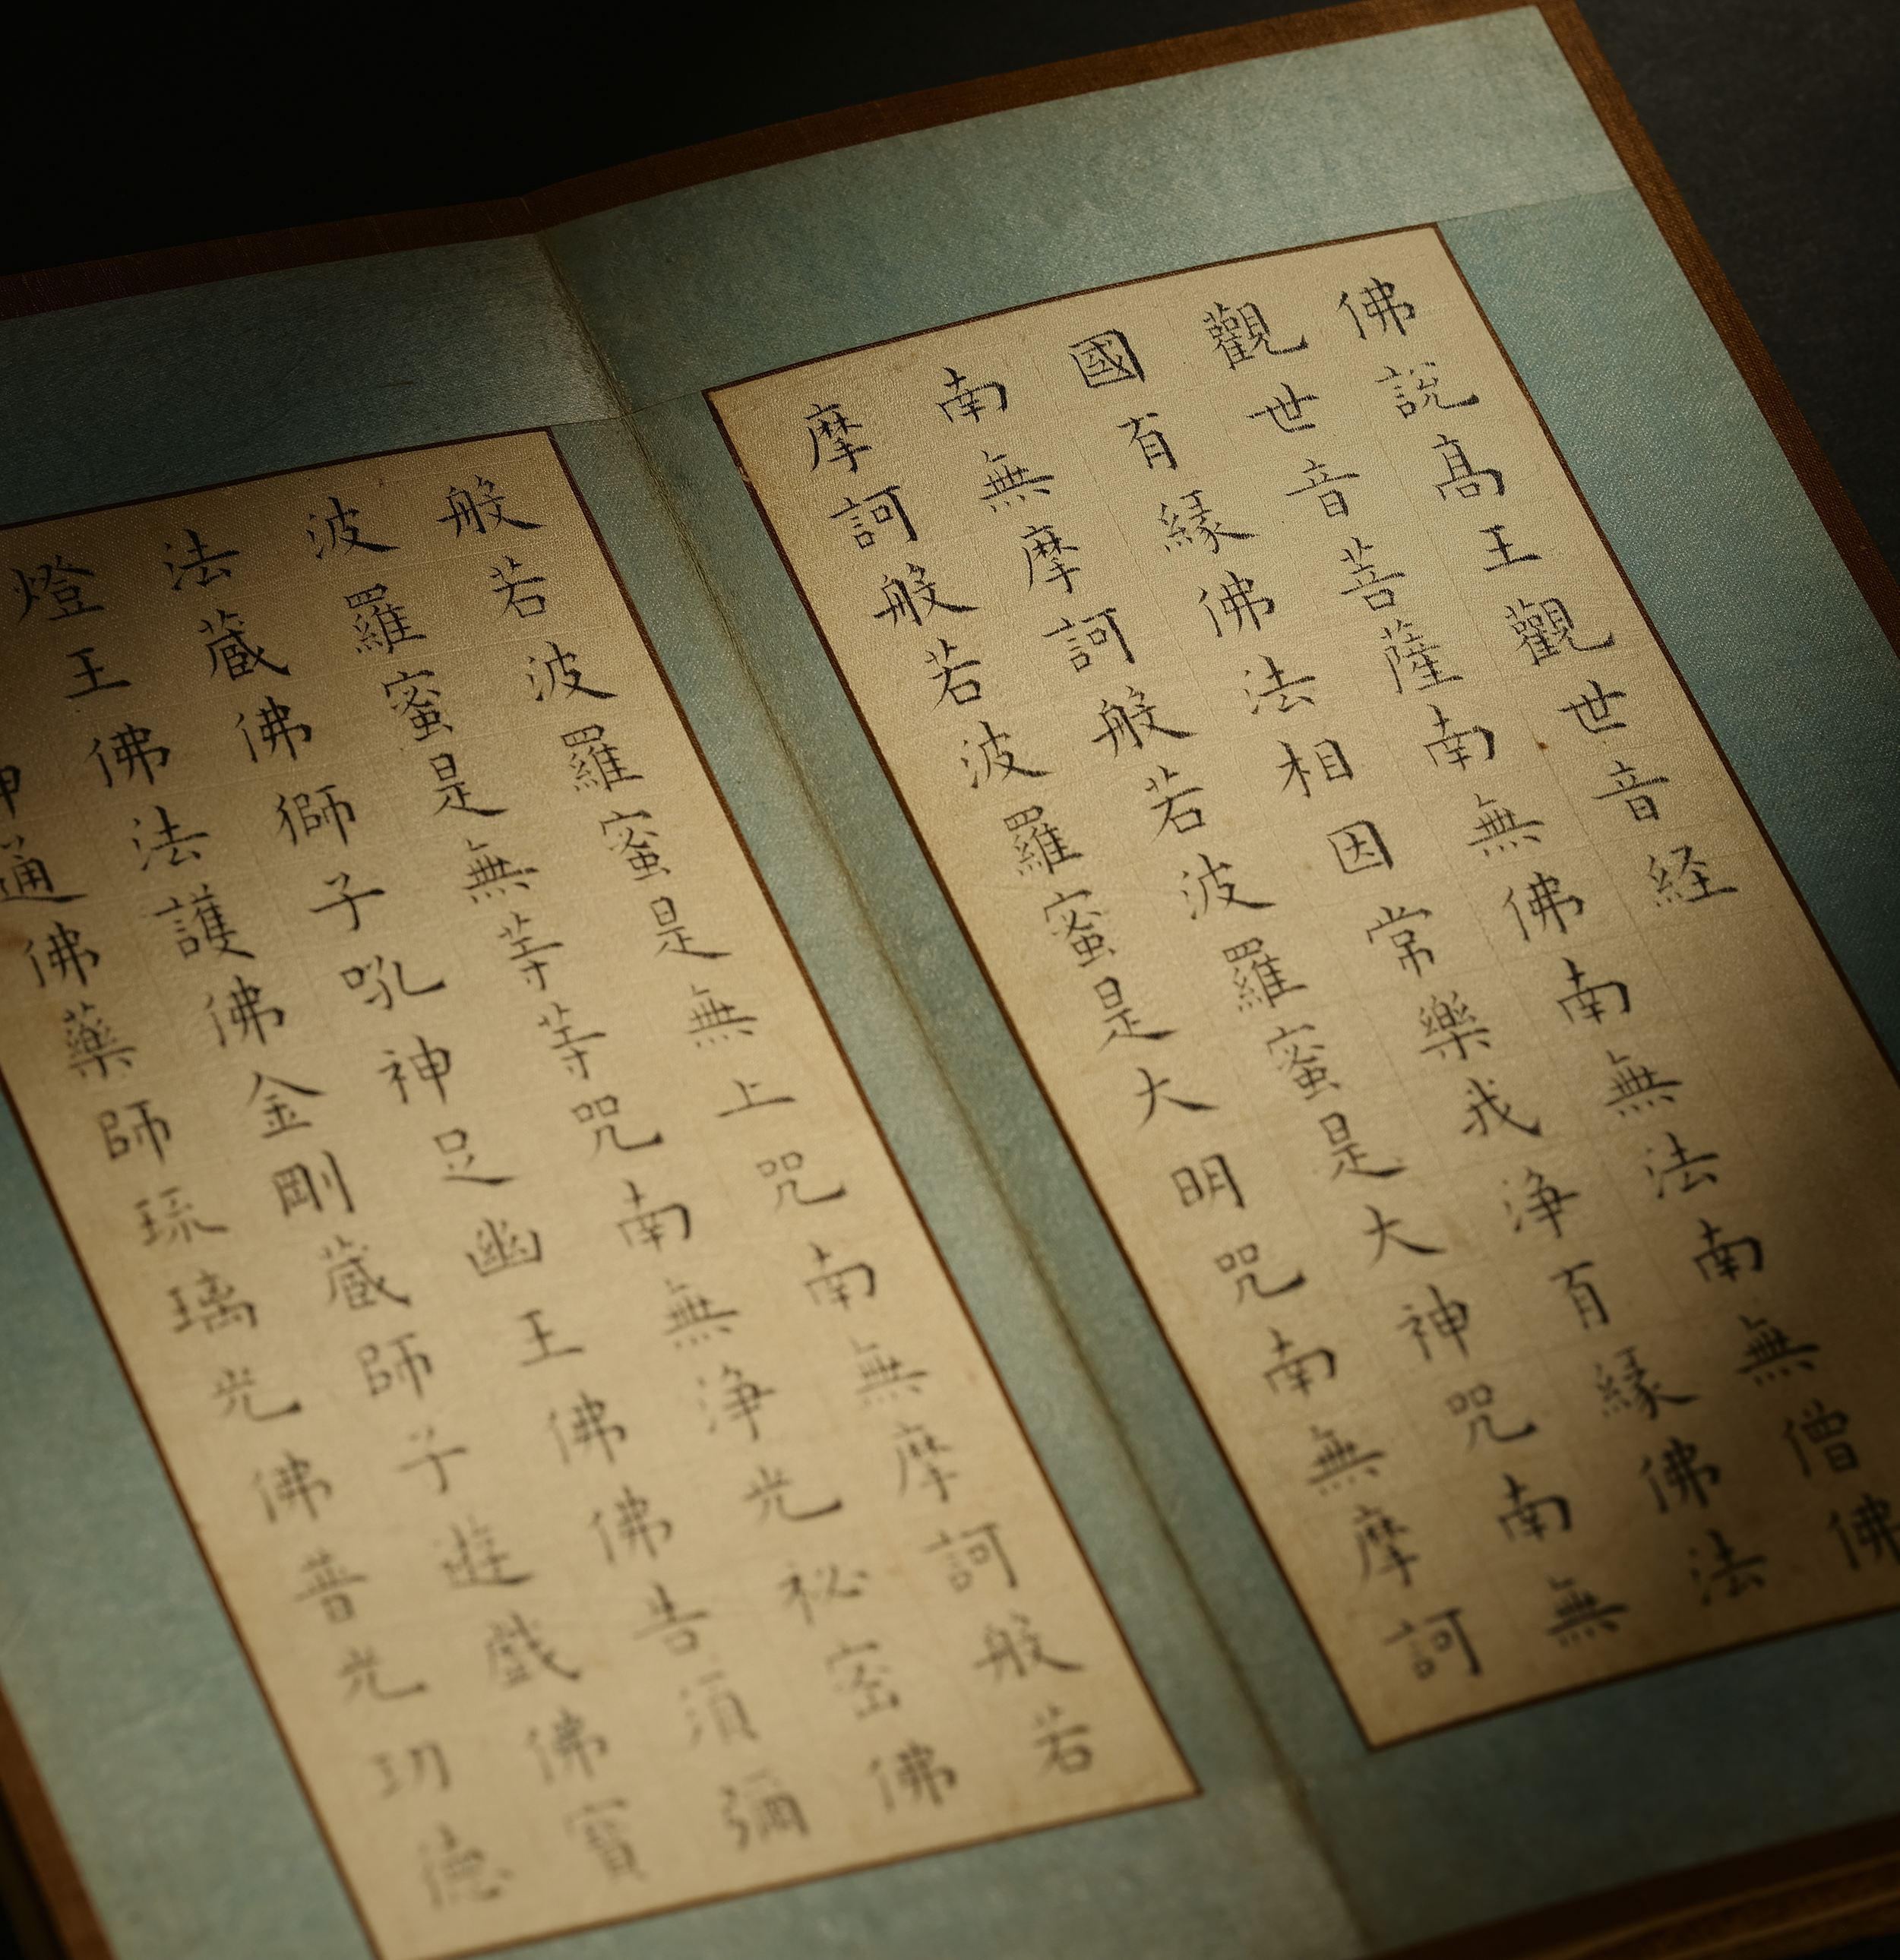 佛說髙王觀世音経
觀世音菩薩南無佛南無法南無僧佛
國有縁佛法相因常樂我浄有縁佛法
南無摩訶般若波羅蜜是大神咒南無
摩訶般若波羅蜜是大明咒南無摩訶
般若波羅蜜是無上咒南無摩訶般若
波羅蜜是無等等咒南無浄光秘密佛
法蔵佛獅子吼神足幽王佛佛告須彌
燈王佛法護佛金剛蔵師子遊戲佛寶
通佛藥師琉璃光佛普光功德